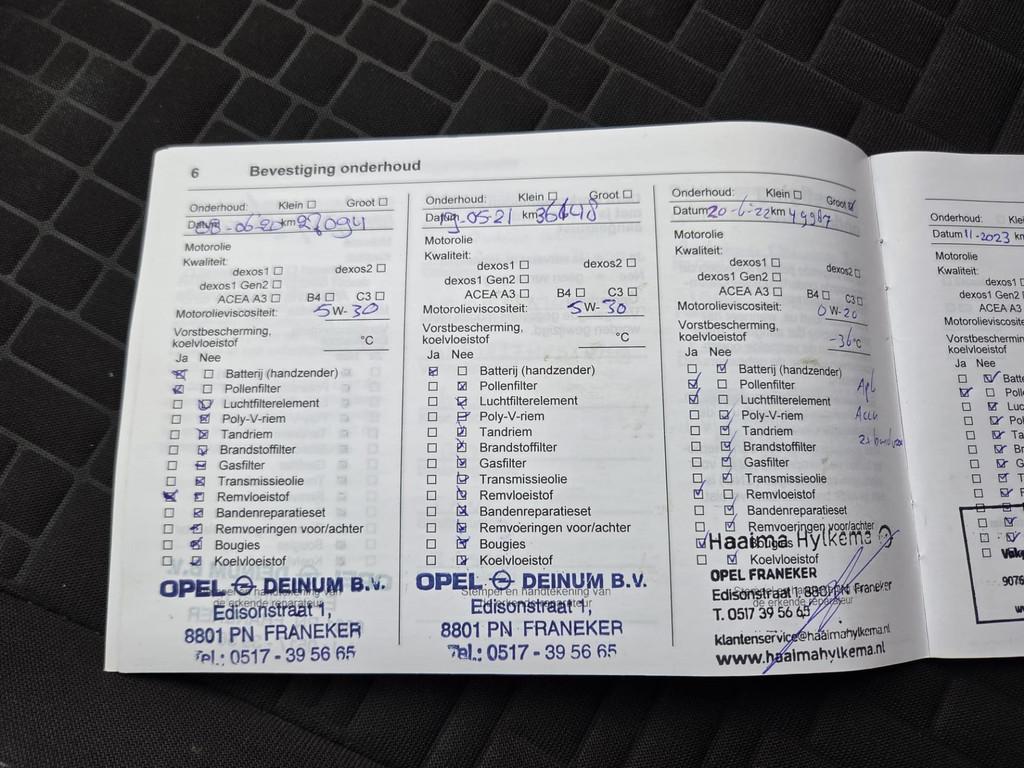 6 Bevestiging onderhoud
Onderhoud: Klein ☐ Groot ☐
Datum -06-20 km 27094
Motorolie
Kwaliteit:
dexos1 ☐ dexos2 ☐
dexos1 Gen2 ☐
ACEA A3 ☐ B4 ☐ C3 ☐
Motorolieviscositeit: 5 W- 30
Vorstbescherming,
koelvloeistof °C
Ja Nee
Batterij (handzender)
Pollenfilter
Luchtfilterelement
Poly-V-riem
Tandriem
Brandstoffilter
Gasfilter
Transmissieolie
Remvloeistof
Bandenreparatieset
Remvoeringen voor/achter
Bougies
Koelvloeistof
OPEL DEINUM B.V.
Stempel en handtekening van
de erkende reparateur
Edisonstraat 1,
8801 PN FRANEKER
Tel.: 0517 - 39 56 65
Onderhoud: Klein ☐ Groot ☐
Datum 19-05-21 km
Motorolie
Kwaliteit:
dexos1 ☐ dexos2 ☐
dexos1 Gen2 ☐
ACEA A3 ☐ B4 ☐ C3 ☐
Motorolieviscositeit: 5 W- 30
Vorstbescherming,
koelvloeistof °C
Ja Nee
Batterij (handzender)
Pollenfilter
Luchtfilterelement
Poly-V-riem
Tandriem
Brandstoffilter
Gasfilter
Transmissieolie
Remvloeistof
Bandenreparatieset
Remvoeringen voor/achter
Bougies
Koelvloeistof
OPEL DEINUM B.V.
Stempel en handtekening van
de erkende reparateur
Edisonstraat 1,
8801 PN FRANEKER
Tel.: 0517 - 39 56 65
Onderhoud: Klein ☐ Groot ☑
Datum 20-6-22 km 49987
Motorolie
Kwaliteit:
dexos1 ☐ dexos2 ☐
dexos1 Gen2 ☐
ACEA A3 ☐ B4 ☐ C3 ☐
Motorolieviscositeit: 0 W-20
Vorstbescherming,
koelvloeistof -36 °C
Ja Nee
Batterij (handzender)
Pollenfilter
Luchtfilterelement
Poly-V-riem
Tandriem
Brandstoffilter
Gasfilter
Transmissieolie
Remvloeistof
Bandenreparatieset
Remvoeringen voor/achter
Bougies
Koelvloeistof
Accu
Haaima Hylkema
OPEL FRANEKER
Stempel en handtekening van
de erkende reparateur
Edisonstraat 1 8801 PN Franeker
T. 0517 39 56 65
klantenservice@haaimahylkema.nl
www.haaimahylkema.nl
Onderhoud: Kle
Datum 11-2023 km
Motorolie
Kwaliteit:
dexos1 ☐
dexos1 Gen2 ☐
ACEA A3
Motorolieviscosite
Vorstbescherming
koelvloeistof
Ja Nee
Batte
Polle
Luc
Pol
Ta
Br
G
T
9076